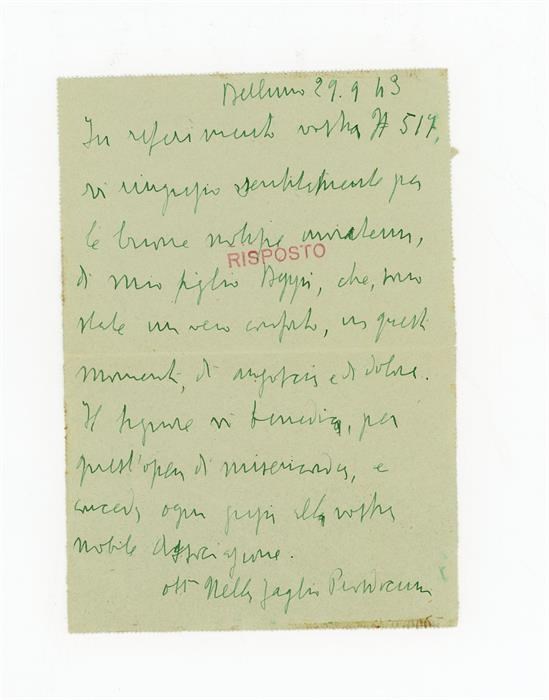 Belluno 29. 9 43
In riferimento vostra H 517,
vi ringrazio sentitamente per
le buone notizie inviatemi,
RISPOSTO
di mio figlio Beppi, che, sono
state un vero conforto, in questi
momenti, di angoscia e di dolore.
Il Signore vi benedica, per
quest'opera di misericordia, e
conceda ogni grazia alla vostra
nobile Associazione.
Nella